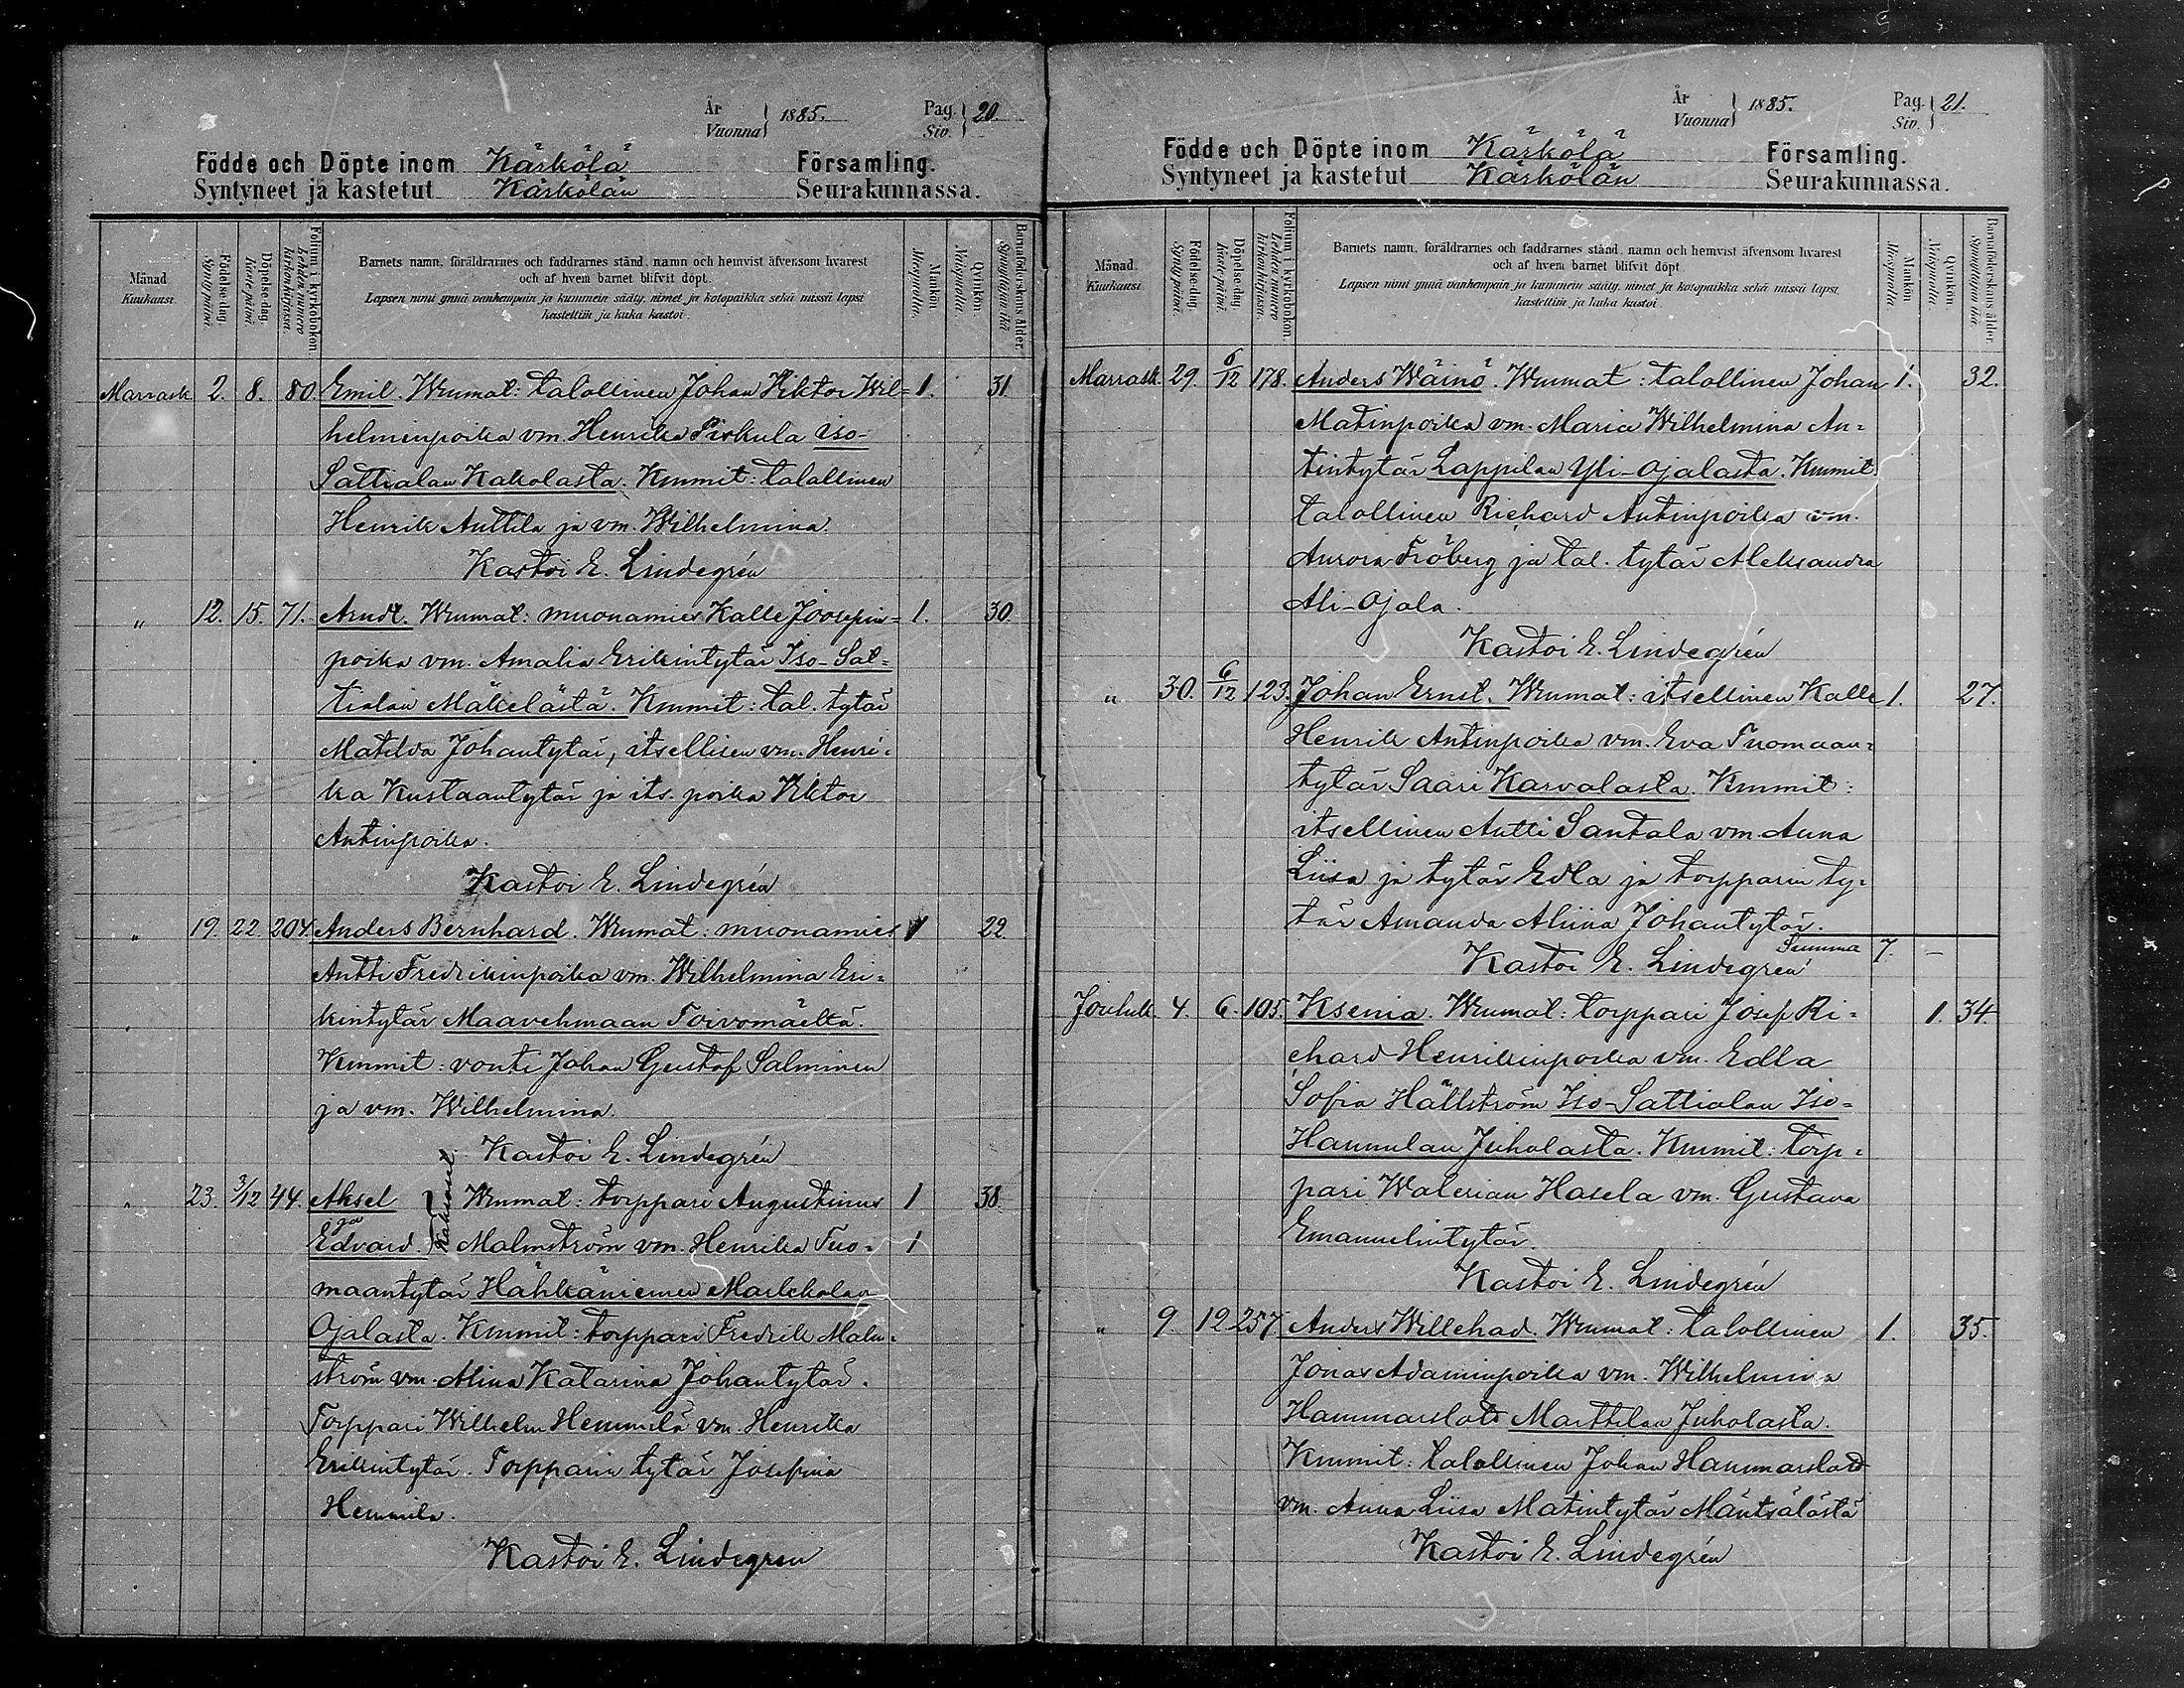 År
Vuonna } 1885.
Pag.
Siv. } 20
Födde och Döpte inom Kärkölä Församling.
Syntyneet ja kastetut Kärkölän Seurakunnassa.
Månad
Kuukausi.
Födelse-dag.
Synty-päivä.
Döpelse-dag.
Kaste-päivä.
Folium i kyrkoboken
Lehden numero kirkonkirjassa.
Barnets namn, föräldrarnes och faddrarnes stånd, namn och hemvist äfvensom hvarest
och af hvem barnet blifvit döpt.
Lapsen nimi ynnä vanhempain ja kummein sääty, nimet ja kotopaikka sekä missä lapsi
kastettiin ja kuka kastoi.
Mankön.
Miespuolia.
Qvinkön.
Vaimpuolia.
Barnaföderskans ålder.
Synnyttäjän ikä
Marrask 2. 8. 80 Emil. Wmmat: talollinen Johan Viktor Wil= 1. 31
helminpoika vm. Henrika Pirkula Iso-
Sattialan Kakolasta. Kmmit: talollinen
Henrik Anttila ja vm. Wilhelmina.
Kastoi E. Lindegrén
" 12. 15. 71. Arndt. Wmmat: muonamies Kalle Joosepin= 1. 30.
poika vm. Amalia Erikintytär Iso-Sat=
tialan Mäkelästä. Kmmit: tal. tytär
Matilda Johantytär, itsellisen vm. Henri=
ka Kustaantytär ja its. poika Viktor
Antinpoika.
Kastoi E. Lindegrén
" 19. 22. 204. Anders Bernhard. Wmmat: muonamies 1 22.
Antti Fredrikinpoika vm. Wilhelmina Eri=
kintytär Maavehmaan Toivomäeltä.
Kmmit: vouti Johan Gustaf Salminen
ja vm. Wilhelmina.
Kastoi E. Lindegrén
" 23. 3/12 44. Aksel } Kaksoiset Wmmat: torppari Augustinus 1 38.
ja
Edvard. Malmström vm. Henrika Tuo= 1
maantytär Hähkäniemen Markkolan
Ojalasta. Kmmit: torppari Fredrik Malm=
ström vm. Alina Katarina Johantytär.
Torppari Wilhelm Hemmilä vm. Henrika
Erikintytär. Torpparin tytär Josefina
Hemmila.
Kastoi E. Lindegren
År
Vuonna } 1885.
Pag.
Siv. } 21.
Födde och Döpte inom Kärkölä Församling.
Syntyneet ja kastetut Kärkölän Seurakunnassa.
Månad.
Kuukausi
Födelse-dag.
Synty-päivä.
Döpelse-dag.
Kaste-päivä.
Folium i kyrkoboken.
Lehden numero kirkonkirjassa.
Barnets namn, föräldrarnes och faddrarnes stånd, namn och hemvist äfvensom hvarest
och af hvem barnet blifvit döpt.
Lapsen nimi ynnä vanhempain ja kummein sääty, nimet ja kotopaikka sekä missä lapsi
kastettiin ja kuka kastoi.
Mankön.
Miespuolia.
Qvinkön.
Vaimpuolia.
Barnaföderskans ålder.
Synnyttäjän ikä
Marrask. 29. 6/12 178. Anders Wäinö. Wmmat: talollinen Johan 1. 32.
Matinpoika vm. Maria Wilhelmina An=
tintytär Lappilan Yli-Ojalasta. Kmmit
talollinen Richard Antinpoika vm.
Aurora Fröberg ja tal. tytär Aleksandra
Ali-Ojala.
Kastoi E. Lindegrén
" 30. 6/12 123. Johan Ernst. Wmmat: itsellinen Kalle 1. 27.
Henrik Antinpoika vm. Eva Tuomaan=
tytär Saari Karvalasta. Kmmit:
itsellinen Antti Santala vm. Anna
Liisa ja tytär Edla ja torpparin ty=
tär Amanda Aliina Johantytär.
Summa 7. –
Kastoi E. Lindegren
Jouluk 4. 6. 105. Ksenia. Wmmat: torppari Josef Ri= 1. 34.
chard Henrikinpoika vm. Edla
Sofia Hällström Iso-Sattialan Iso=
Hannulan Juholasta. Kmmit: torp=
pari Walerian Hasela vm. Gustava
Emanuelintytär.
Kastoi E. Lindegrén
" 9. 12 257 Anders Willehad. Wmmat: talollinen 1. 35.
Jonas Adaminpoika vm. Wilhelmina
Hammarslots Marttilan Juholasta.
Kmmit: talollinen Johan Hammarslots
vm. Anna Liisa Matintytär Mäntsälästä
Kastoi E. Lindegrén